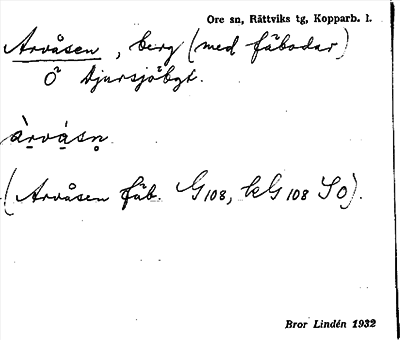 Ore sn, Rättviks tg, Kopparb. l.
Arvåsen, berg (med fäbodar)
Ö Djursjöbgt.
àrvásn
(Arvåsen fäb. G 108, kG 108 SO).
Bror Lindén 1932